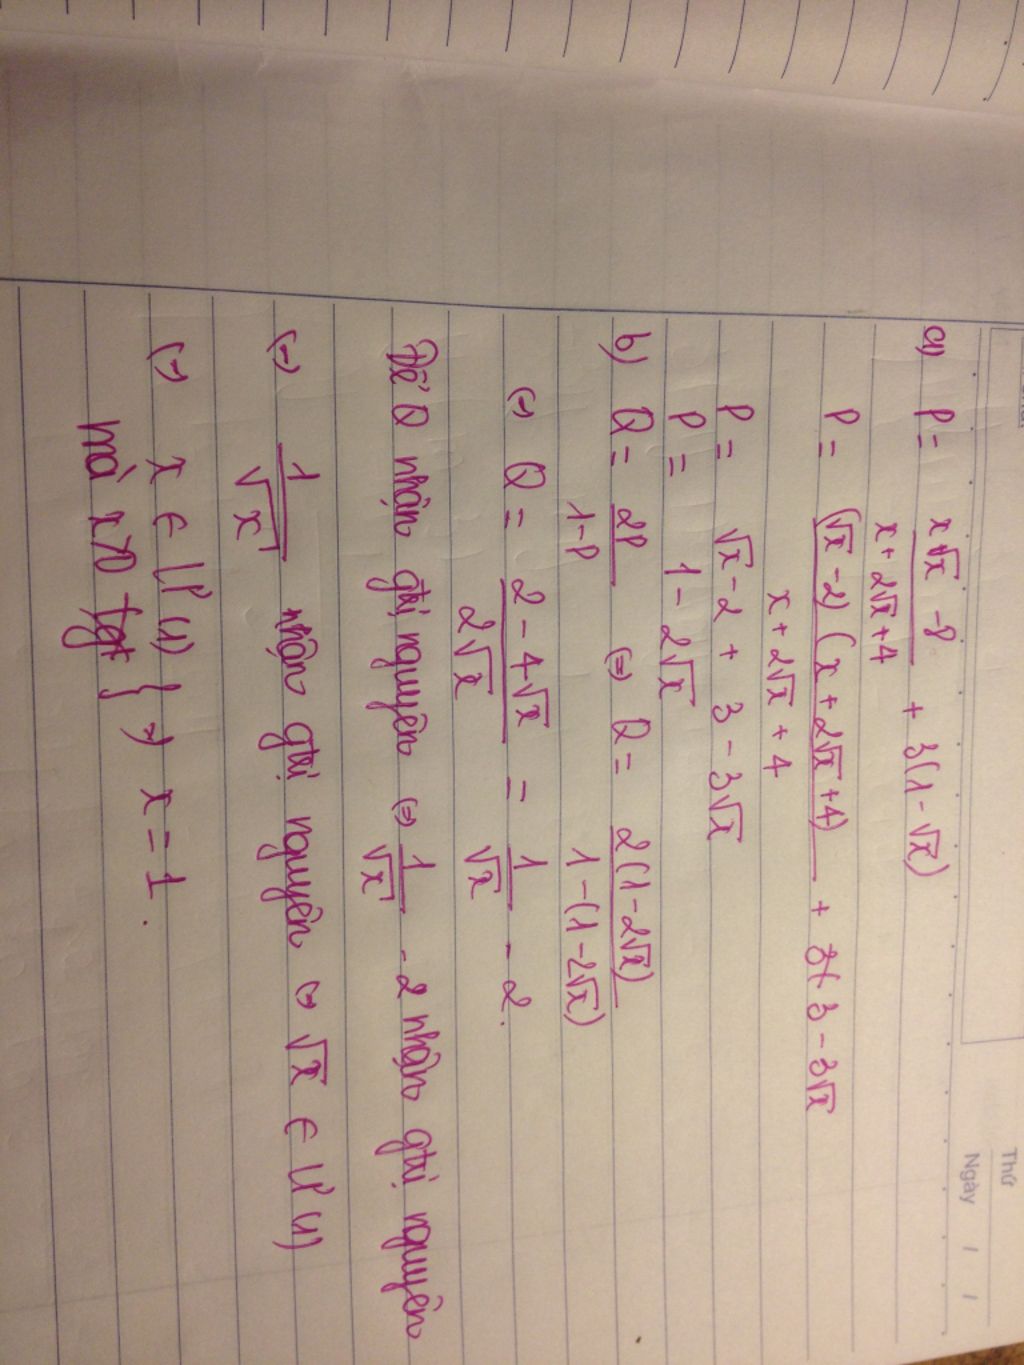 Thứ
Ngày / /
a) P = x√x - 8 / x + 2√x + 4 + 3(1 - √x)
P = (√x - 2)(x + 2√x + 4) / x + 2√x + 4 + 3 - 3√x
P = √x - 2 + 3 - 3√x
P = 1 - 2√x
b) Q = 2P / 1-P (=) Q = 2(1-2√x) / 1-(1-2√x)
(=) Q = 2 - 4√x / 2√x = 1/√x - 2.
Để Q nhận gtrị nguyên (=) 1/√x - 2 nhận gtrị nguyên
(=) 1/√x nhận gtrị nguyên (=) √x ∈ Ư(1)
(=) x ∈ Ư(1) } => x = 1.
mà x>0